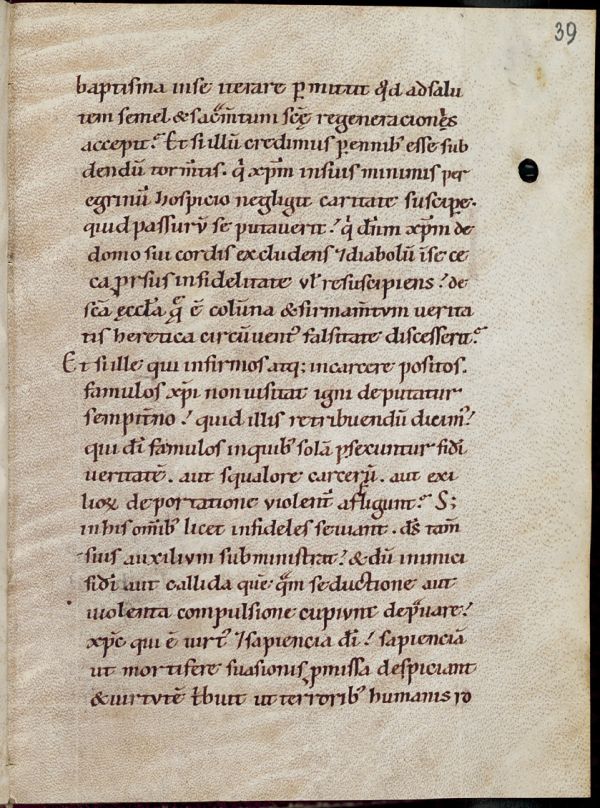 39
baptisma inse iterare p̄mitit qd̄ adsalu
tem semel & sac̄m̄tum sc̄ę regeneracionęs
accepit? Et si illū credimus p̄ennib; esse sub
dendū torm̄tis. q' xp̄m insuis minimis per
egrinū hospicio negligit caritate suscipe.
quid passurū se putaverit? q' dn̄m xp̄m de
domo sui cordis excludens ⁊ diabolū īse ce
ca prsus infidelitate vl' resuscipiens? de
sc̄a ęccl'a q̄ ē colūna & firmam̄tvm verita
tis heretica circūvent' falsitate discesserit?
Et si ille qui infirmos atq; incarcere positos.
famulos xp̄i non uisitat igni deputatur
sempit̄no? quid illis retribuendū dicim'?
qui dī famulos inquib; solā psexuntur fidi
veritatē. aut squalore carcerū. aut exi
lioꝝ deportatione violent' affligunt? S;
inhis om̄ib; licet infideles seviant. ds̄ tam̄
suis auxilivm subministrat? & dū inimici
fidi aut callida quē q̄m seductione aut
uiolenta compulsione cupivnt dep̄uare?
xp̄c qui ē uirt' ⁊ sapiencia dī? sapienciā
ut mortifere suasionis p̄missa despiciant
& uirtvtē t̄buit ut terrorib; humanis ro